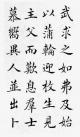 武求之如弗及始
以蒲輪迎枚生見
主父而歎息群士
慕嚮異人並出卜